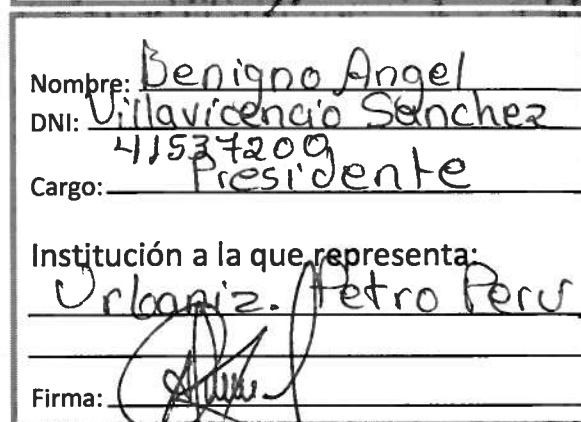 Nombre: Benigno Angel
DNI: Villavicencio Sanchez
41537209
Cargo: Presidente
Institución a la que representa:
Urbaniz. Petro Perú
Firma: